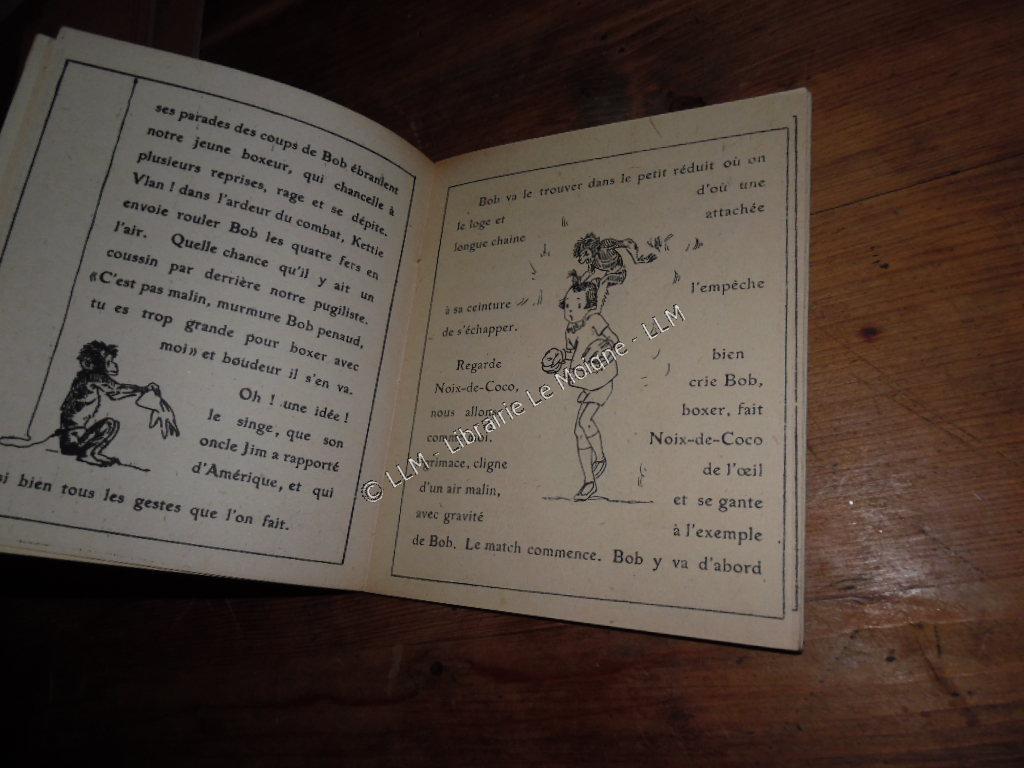 ses parades des coups de Bob ébranlent
notre jeune boxeur, qui chancelle à
plusieurs reprises, rage et se dépite.
Vlan ! dans l'ardeur du combat, Kettie
envoie rouler Bob les quatre fers en
l'air. Quelle chance qu'il y ait un
coussin par derrière notre pugiliste.
«C'est pas malin, murmure Bob penaud,
tu es trop grande pour boxer avec
moi» et boudeur il s'en va.
Oh ! une idée !
le singe, que son
oncle Jim a rapporté
d'Amérique, et qui
bien tous les gestes que l'on fait.
Bob va le trouver dans le petit réduit où on
le loge et d'où une
longue chaine attachée
à sa ceinture l'empêche
de s'échapper.
Regarde bien
Noix-de-Coco, crie Bob,
nous allons boxer, fait
Noix-de-Coco
grimace, cligne de l'œil
d'un air malin, et se gante
avec gravité à l'exemple
de Bob. Le match commence. Bob y va d'abord
© LLM - Librairie Le Moigne - LLM